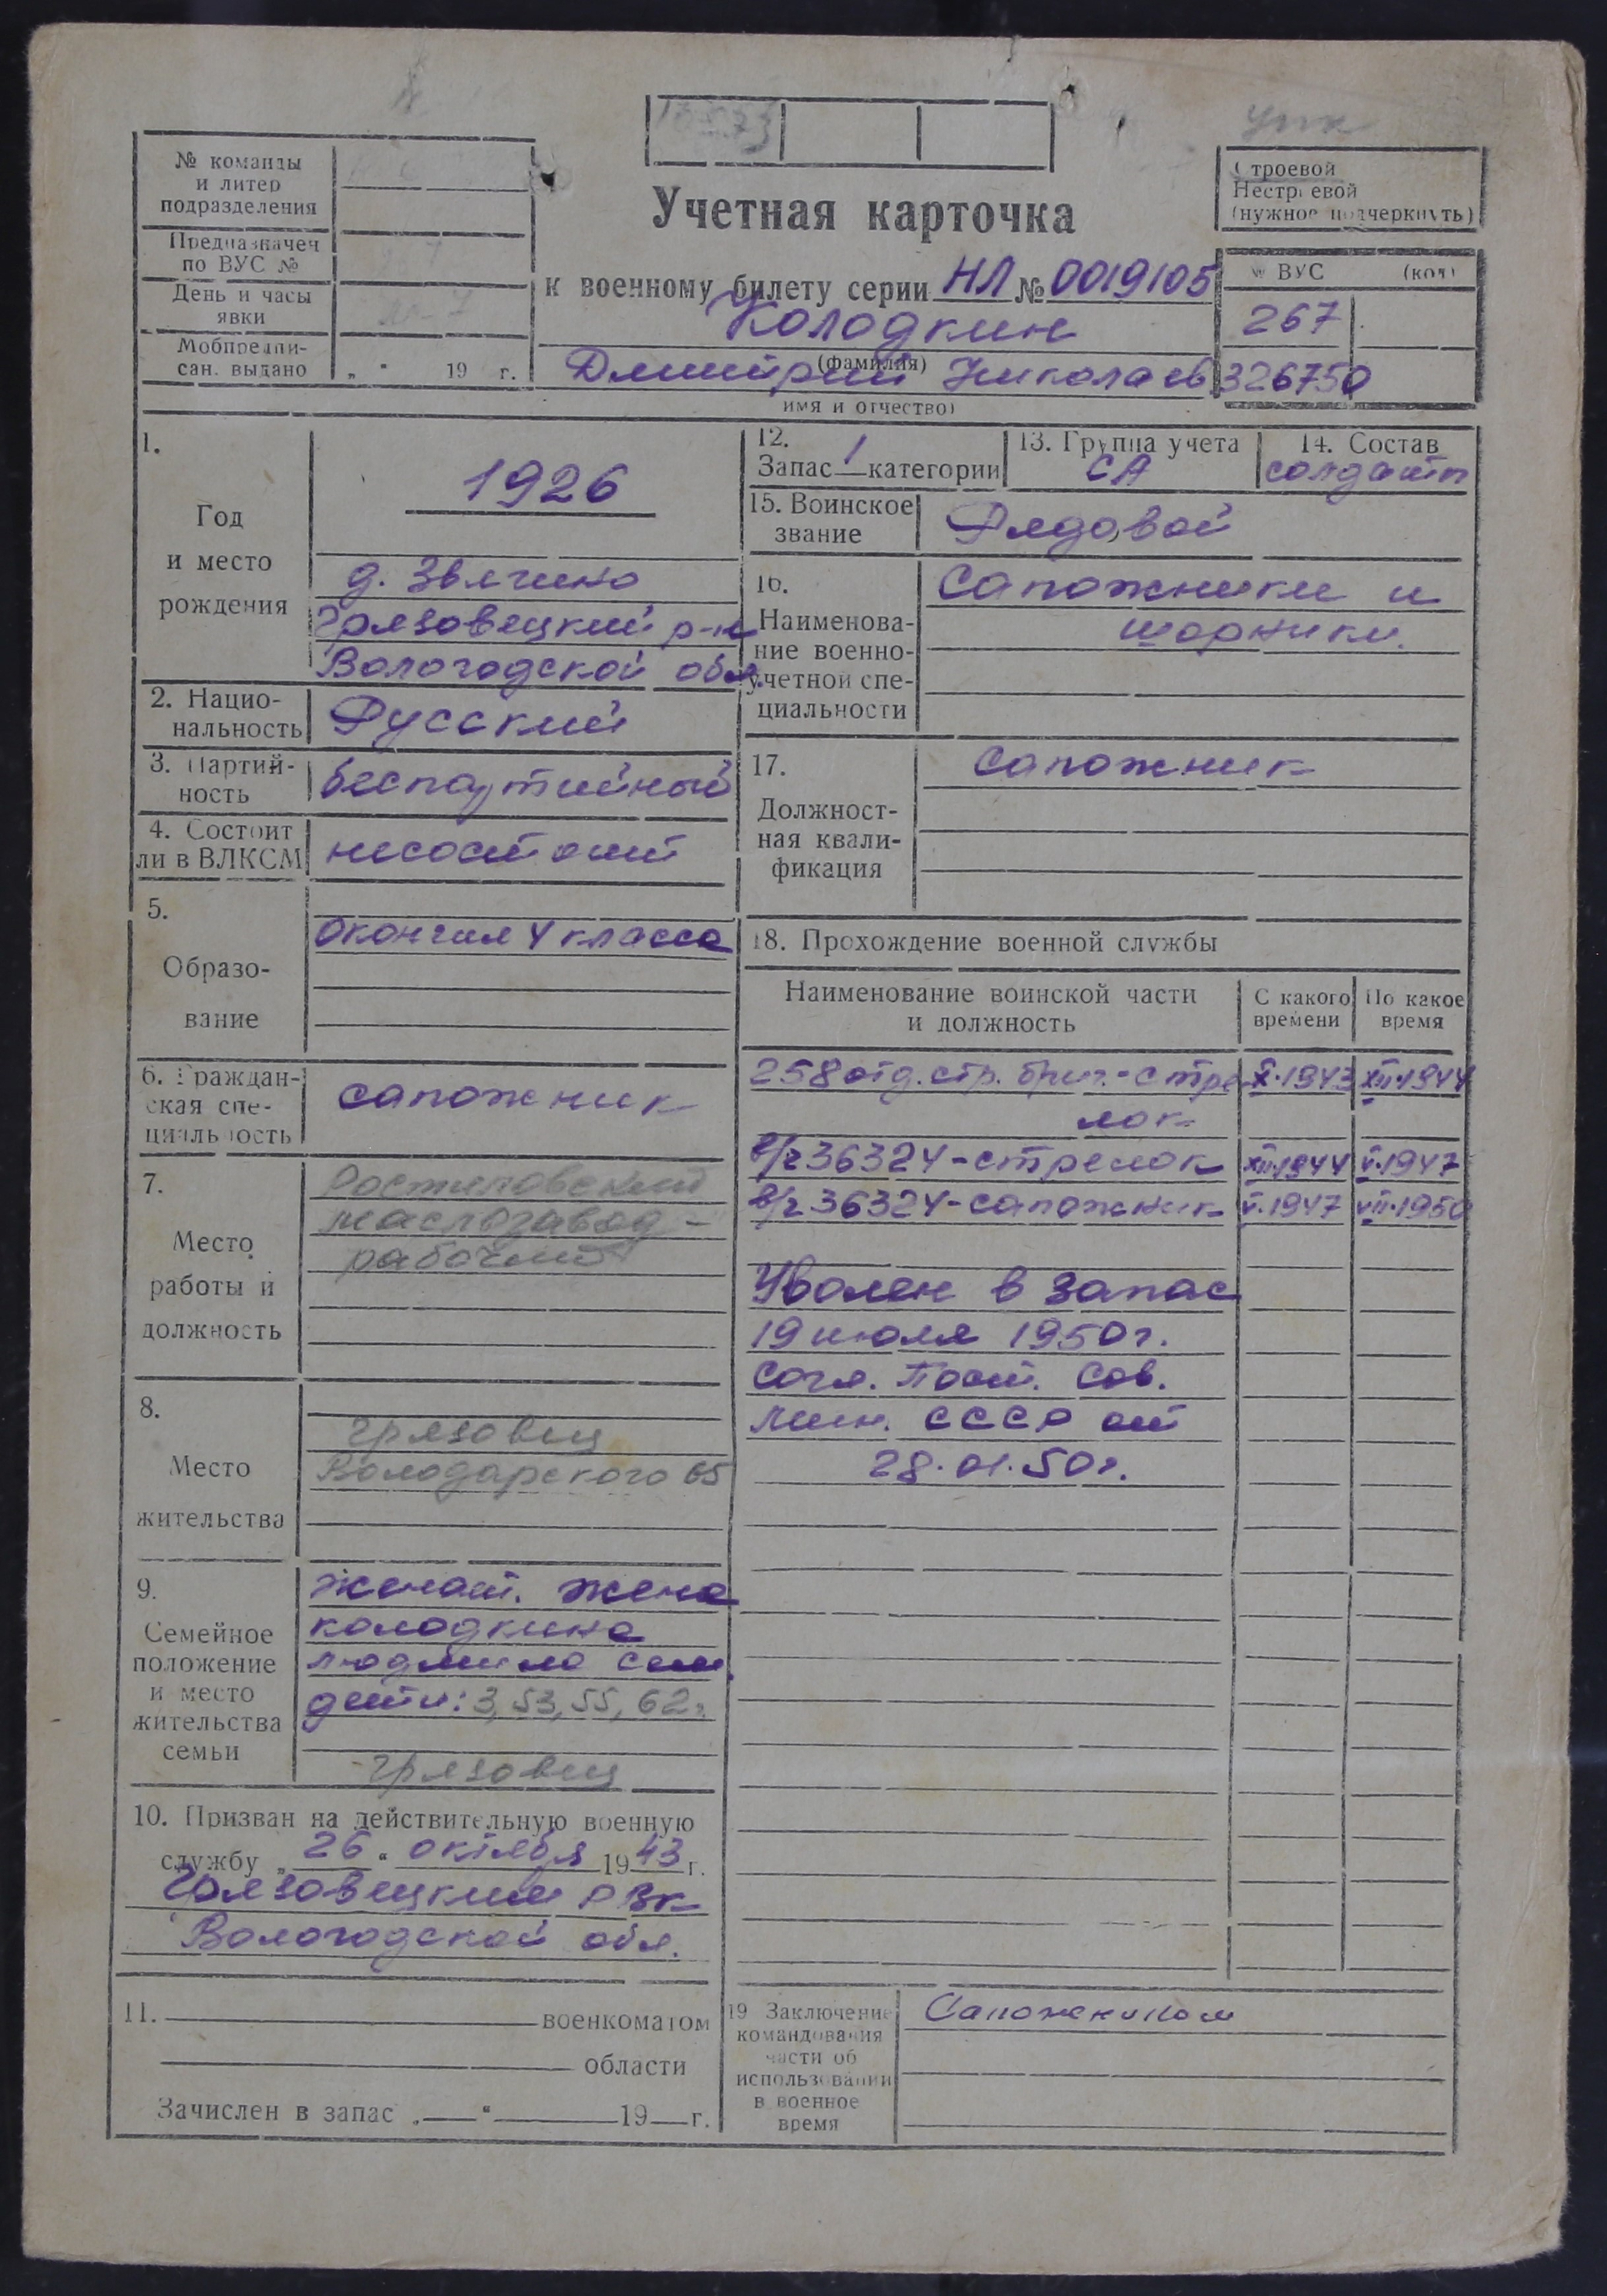 № команды
и литер
подразделения
Предназначен
по ВУС №
День и часы
явки
Мобпредпи-
сан. выдано „ “ 19 г.
Учетная карточка
к военному билету серии НЛ № 0019105
Колодкин
(фамилия)
Дмитрий Николаев
имя и отчество)
Строевой
Нестроевой
(нужное подчеркнуть)
№ ВУС (код)
267
326750
1.
Год
и место
рождения
1926
д. Звягино
Грязовецкий р-н
Вологодской обл.
2. Нацио-
нальность Русский
3. Партий-
ность беспартийный
4. Состоит
ли в ВЛКСМ несостоит
5.
Образо-
вание
Окончил 4 класса
6. Граждан-
ская спе-
циальность
сапожник
7.
Место
работы и
должность
Ростиловский
маслозавод -
рабочий
8.
Место
жительства
Грязовец
Володарского 65
9.
Семейное
положение
и место
жительства
семьи
женат. жена
колодкина
людмила сем.
дети: 3, 53, 55, 62г.
Грязовец
10. Призван на действительную военную
службу „ 26 “ октября 1943 г.
Грязовецким РВК
Вологодской обл.
11. военкоматом
области
Зачислен в запас „ “ 19 г.
12.
Запас 1 категории
13. Группа учета
СА
14. Состав
солдатт
15. Воинское
звание
Рядовой
16.
Наименова-
ние военно-
учетной спе-
циальности
Сапожники и
шорники.
17.
Должност-
ная квали-
фикация
сапожник
18. Прохождение военной службы
Наименование воинской части
и должность
С какого
времени
По какое
время
258 отд. стр. бриг. - стре X.1943 XII.1944
лок
в/ч 36324 - стрелок XII.1944 V.1947
в/ч 36324 - сапожник V.1947 VII.1950
Уволен в запас
19 июля 1950 г.
Согл. Пост. Сов.
Мин. СССР от
28.01.50г.
19 Заключение
командования
части об
использовании
в военное
время
Сапожником